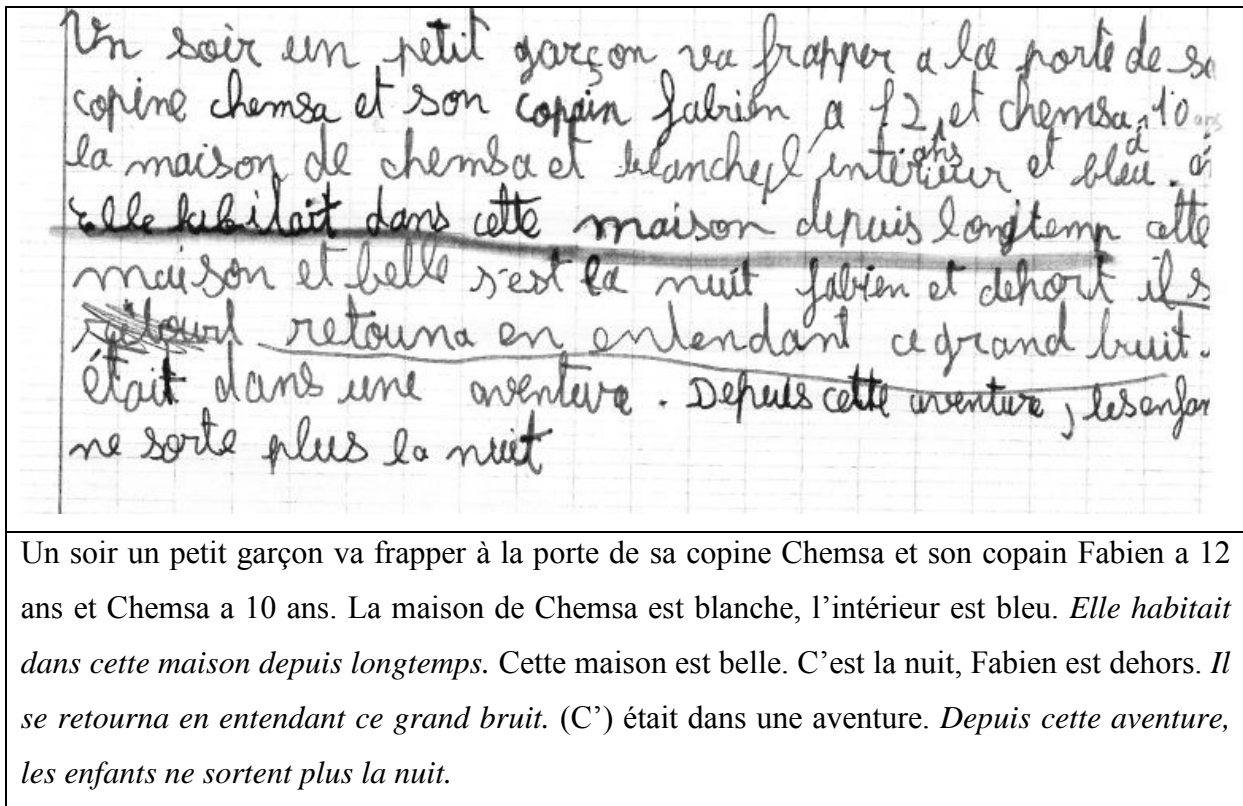 Un soir un petit garçon va frapper a la porte de sa
copine chemsa et son copain fabien a 12 et chemsa 10 ans
ans a
la maison de chemsa et blanche l'intérieur et bleu.
elle habitait dans cette maison depuis longtemp cette
maison et belle s'est la nuit fabien et dehort il s
retouna en entendant ce grand bruit.
était dans une aventure. Depuis cette aventure, les enfan
ne sorte plus la nuit
Un soir un petit garçon va frapper à la porte de sa copine Chemsa et son copain Fabien a 12
ans et Chemsa a 10 ans. La maison de Chemsa est blanche, l’intérieur est bleu. Elle habitait
dans cette maison depuis longtemps. Cette maison est belle. C’est la nuit, Fabien est dehors. Il
se retourna en entendant ce grand bruit. (C’) était dans une aventure. Depuis cette aventure,
les enfants ne sortent plus la nuit.